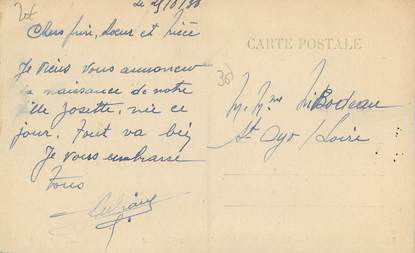 le 25/8/30
Chers frère, soeur et nièce
CARTE POSTALE
Je viens vous annoncer
la naissance de notre
fille Josette, née ce
jour. Tout va bien
Je vous embrasse
Tous
M. Mme
St Ayo / Loire